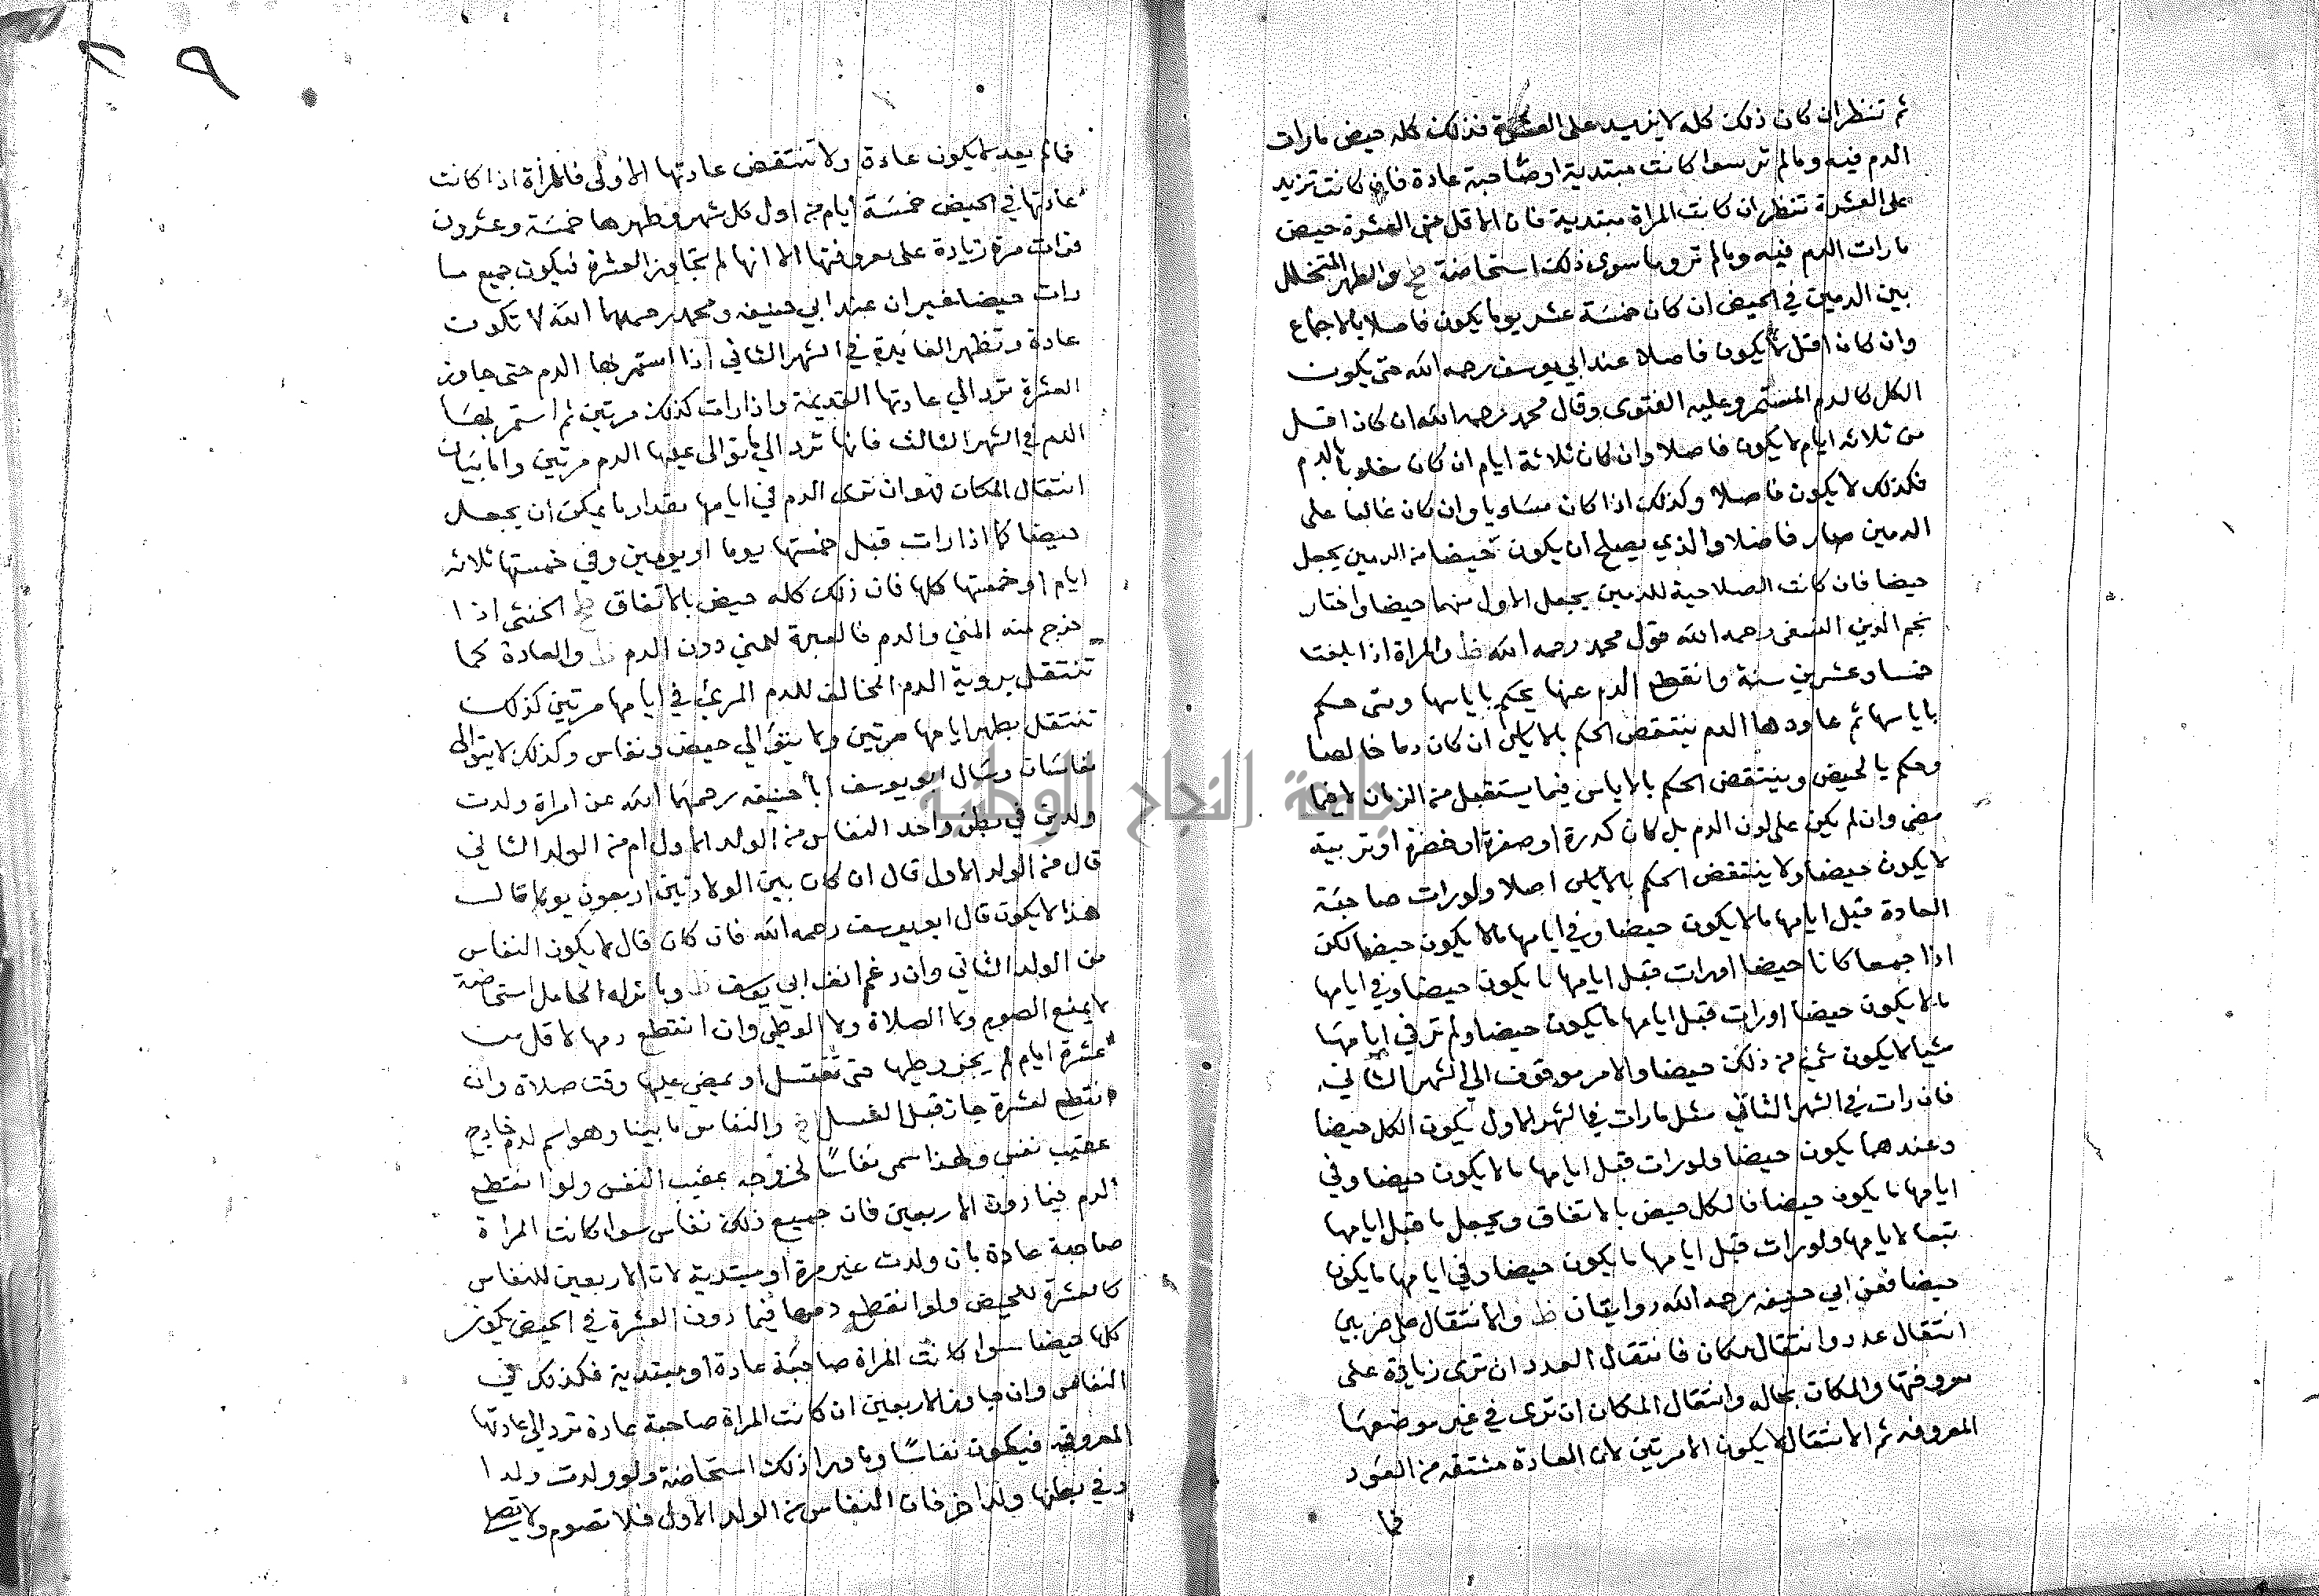 ثم تنظر ان كان ذلك كله لا يزيد على العشرة فذلك كله حيض ما رات
الدم فيه وما لم تر سوا كانت مبتدية او صاحبة عادة فان كانت تزيد
على العشرة تنظر ان كانت المراة مبتدية فان الاقل من العشرة حيض
ما رات الدم فيه وما لم تر وما سوى ذلك استحاضة والطهر المتخلل
بين الدمين في الحيض ان كان خمسة عشر يوما يكون فاصلا بالاجماع
وان كان اقل لا يكون فاصلا عند ابي يوسف رحمه الله حتى يكون
الكل كالدم المستمر وعليه الفتوى وقال محمد رحمه الله ان كان اقل
من ثلاثه ايام لا يكون فاصلا وان كان ثلاثة ايام ان كان مغلوبا بالدم
فكذلك لا يكون فاصلا وكذلك اذا كان مساويا وان كان غالبا على
الدمين صار فاصلا والذي يصلح ان يكون حيضا من الدمين يجعل
حيضا فان كانت الصلاحية للدمين يجعل الاول منهما حيضا واختار
نجم الدين النسفى رحمه الله قول محمد رحمه الله ظ والمراة اذا بلغت
خمسا وعشرين سنة وانقطع الدم عنها يحكم باياسها ومتى حكم
باياسها ثم عاودها الدم ينتقض الحكم بالاياس ان كان دما خالصا
وحكم بالحيض وينتقض الحكم بالاياس فيما يستقبل من الزمان لا فيما
مضى وان لم يكن على لون الدم بل كان كدرة او صفرة او خضرة او تربية
لا يكون حيضا ولا ينتقض الحكم بالاياس اصلا ولو رات صاحبة
العادة قبل ايامها ما لا يكون حيضا وفي ايامها ما لا يكون حيضا لكن
اذا جمعا كانا حيضا او رات قبل ايامها ما يكون حيضا وفي ايامها
ما لا يكون حيضا او رات قبل ايامها ما يكون حيضا ولم تر في ايامها
شيا لا يكون شي من ذلك حيضا والامر موقوف الى الشهر الثاني
فان رات في الشهر الثاني مثل ما رات في الشهر الاول يكون الكل حيضا
وعندهما يكون حيضا ولو رات قبل ايامها ما لا يكون حيضا وفي
ايامها ما يكون حيضا فالكل حيض بالاتفاق ويجعل ما قبل ايامها
تبعا لايامها ولو رات قبل ايامها ما يكون حيضا وفي ايامها ما يكون
حيضا فعن ابي حنيفه رحمه الله روايتان ظ والانتقال على ضربين
انتقال عدد وانتقال مكان فانتقال العدد ان ترى زيادة على
معروفتها والمكان بحاله وانتقال المكان ان ترى في غير موضعها
المعروفه ثم الانتقال لا يكون الا مرتين لان العادة مشتقه من العود
فما
٢٩
فما لم يعد لا يكون عادة ولا تنتقض عادتها الاولى فالمراة اذا كانت
عادتها في الحيض خمسة ايام من اول كل شهر وطهرها خمسة وعشرون
فرات مرة زيادة على معروفتها الا انها لم تجاوز العشرة فيكون جميع ما
رات حيضا غير ان عند ابي حنيفه ومحمد رحمهما الله لا تكون
عادة وتظهر الفايدة في الشهر الثاني اذا استمر بها الدم حتى جاوز
العشرة ترد الي عادتها القديمة واذا رات كذلك مرتين ثم استمر بها
الدم في الشهر الثالث فانها ترد الي ما توالى عليها الدم مرتين واما بيان
انتقال المكان فهو ان ترى الدم في ايامها مقدار ما يمكن ان يجعل
حيضا كما اذا رات قبل خمستها يوما او يومين وفي خمستها ثلاثه
ايام او خمستها كلها فان ذلك كله حيض بالاتفاق الخنثى اذا
خرج منه المني والدم فالعبرة للمني دون الدم ظ والعادة كما
تنتقل بروية الدم المخالف للدم المرئي في ايامها مرتين كذلك
تنتقل بطهر ايامها مرتين ولا يتوالي حيض ونفاس وكذلك لا يتوالى
نفاسان وسال ابو يوسف ابا حنيفه رحمهما الله عن امراة ولدت
ولدين في بطن واحد النفاس من الولد الاول ام من الولد الثاني
قال من الولد الاول قال ان كان بين الولادتين اربعون يوما قال
هذا لا يكون قال ابو يوسف رحمه الله فان كان قال لا يكون النفاس
من الولد الثاني وان رغم انف ابي يوسف ظ وما تراه الحامل استحاضة
لا يمنع الصوم ولا الصلاة ولا الوطى وان انقطع دمها لاقل من
عشرة ايام لم يجز وطيها حتى تغتسل او يمضي عليها وقت صلاة وان
انقطع لعشرة جاز قبل الغسل والنفاس ما بينا وهو اسم لدم خارج
عقيب نفس ولهذا سمى نفاسا لخروجه بعقيب النفس ولو انقطع
الدم فيما دون الاربعين فان جميع ذلك نفاس سوا كانت المراة
صاحبة عادة بان ولدت غير مرة او مبتدية لان الاربعين للنفاس
كالعشرة للحيض ولو انقطع دمها فيما دون العشرة في الحيض يكون
كلها حيضا سوا كانت المراة صاحبة عادة او مبتدية فكذلك في
النفاس وان جاوز الاربعين ان كانت المراة صاحبة عادة ترد الي عادتها
المعروفه فيكون نفاسا وما ورا ذلك استحاضة ولو ولدت ولدا
وفي بطنها ولد اخر فان النفاس من الولد الاول فلا تصوم ولا تصلي
جامعة النجاح الوطنية